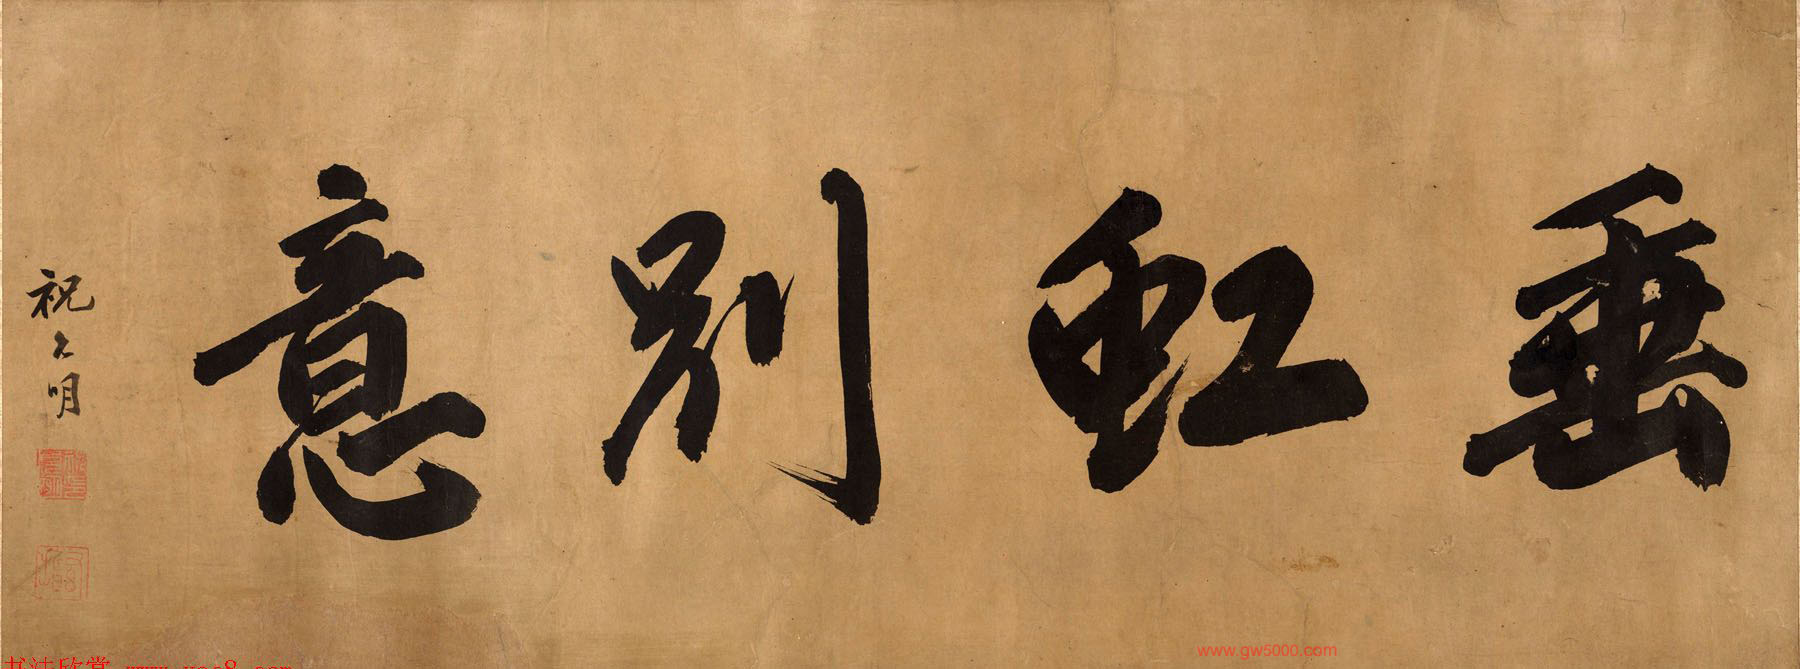 垂虹别意
祝允明
书法欣赏 www.yac8.com
www.gw5000.com